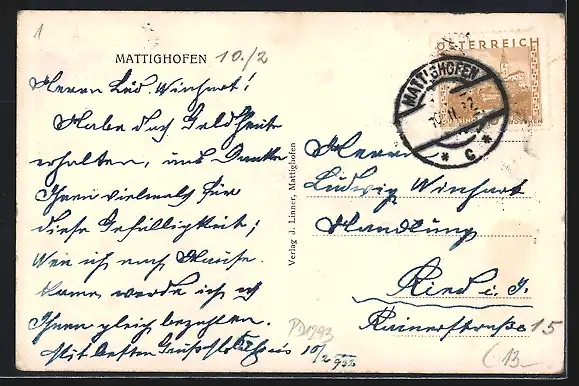 1
MATTIGHOFEN 10./2
Herrn Lud. Winhart!
Habe das Geld heute
erhalten, und danke
Ihnen vielmals für
diese Gefälligkeit;
Wen ich nach Hause
komme werde ich es
Ihnen gleich bezahlen.
Mit besten Gruß 10/2 932
Verlag J. Linner, Mattighofen
ÖSTERREICH
MATTIGHOFEN
* C *
Herrn
Ludwig Winhart
Handlung
Ried i. I.
Rainerstraße 15
PD1793